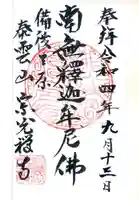 奉拝 令和四年九月十三日
南無釋迦牟尼佛
備後三原
泰雲山宗光禅寺